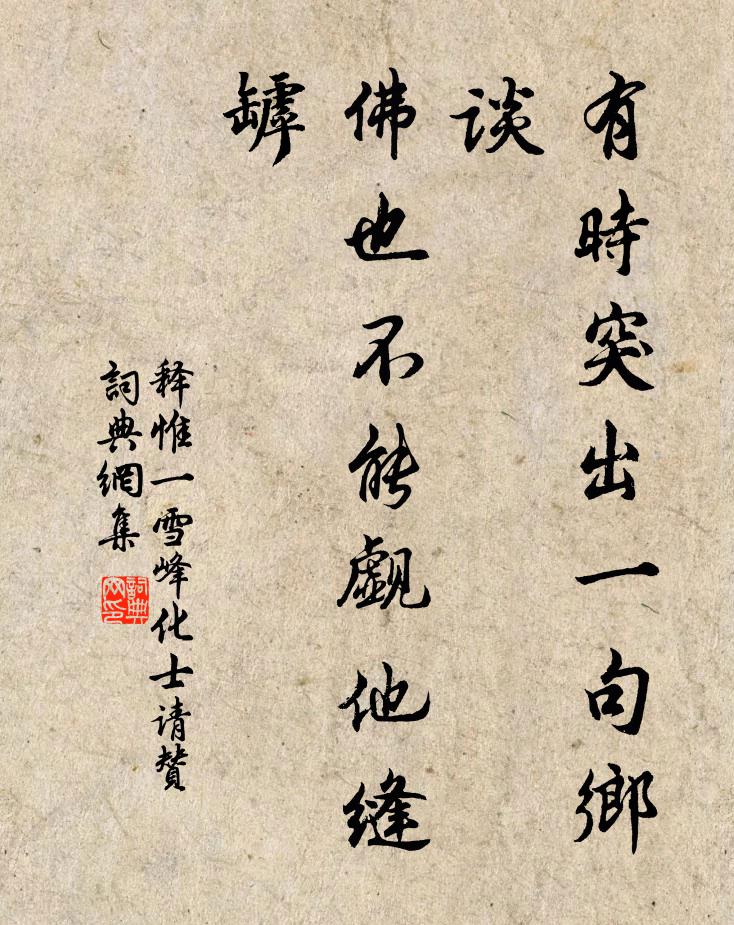 有時突出一句鄉
談
佛也不能覷他縫
罅
释惟一雪峰化士请賛
詞典網集
詞典網印